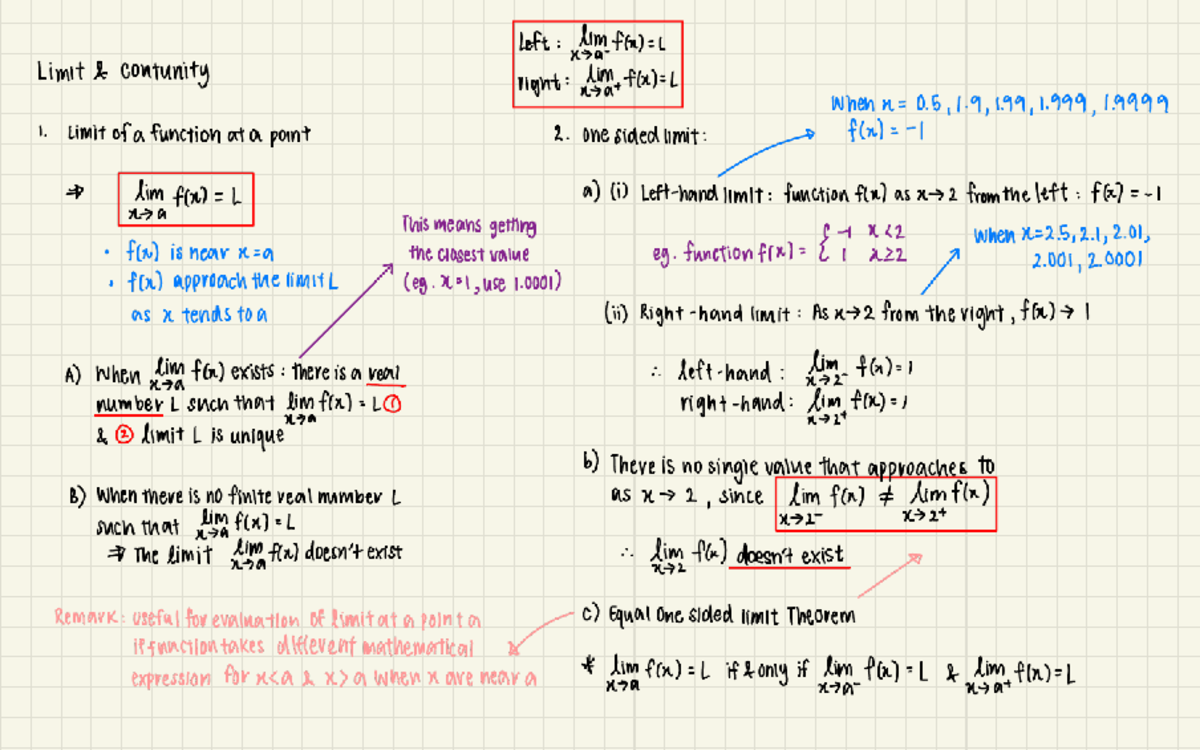 Limit & contunity
Left : lim x→a⁻ f(x) = L
right : lim x→a⁺ f(x) = L
1. Limit of a function at a point
⇒ lim x→a f(x) = L
• f(x) is near x=a
• f(x) approach the limit L
as x tends to a
This means getting
the closest value
(eg. x=1, use 1.0001)
A) When lim x→a f(x) exists : there is a real
number L such that lim x→a f(x) = L ①
& ② limit L is unique
B) When there is no finite real number L
such that lim x→a f(x) = L
⇒ The limit lim x→a f(x) doesn't exist
Remark: useful for evaluation of limit at a point a
if function takes different mathematical
expression for x<a & x>a when x are near a
2. One sided limit :
When x = 0.5, 1.9, 1.99, 1.999, 1.9999
f(x) = -1
a) (i) Left-hand limit : function f(x) as x→2 from the left : f(x) = -1
eg. function f(x) = { -1 x<2
1 x≥2
When x=2.5, 2.1, 2.01,
2.001, 2.0001
(ii) Right-hand limit : As x→2 from the right, f(x) → 1
∴ left-hand : lim x→2⁻ f(x) = 1
right-hand : lim x→2⁺ f(x) = 1
b) There is no single value that approaches to
as x → 2, since lim x→2⁻ f(x) ≠ lim x→2⁺ f(x)
∴ lim x→2 f(x) doesn't exist
c) Equal One sided limit Theorem
* lim x→a f(x) = L if & only if lim x→a⁻ f(x) = L & lim x→a⁺ f(x) = L